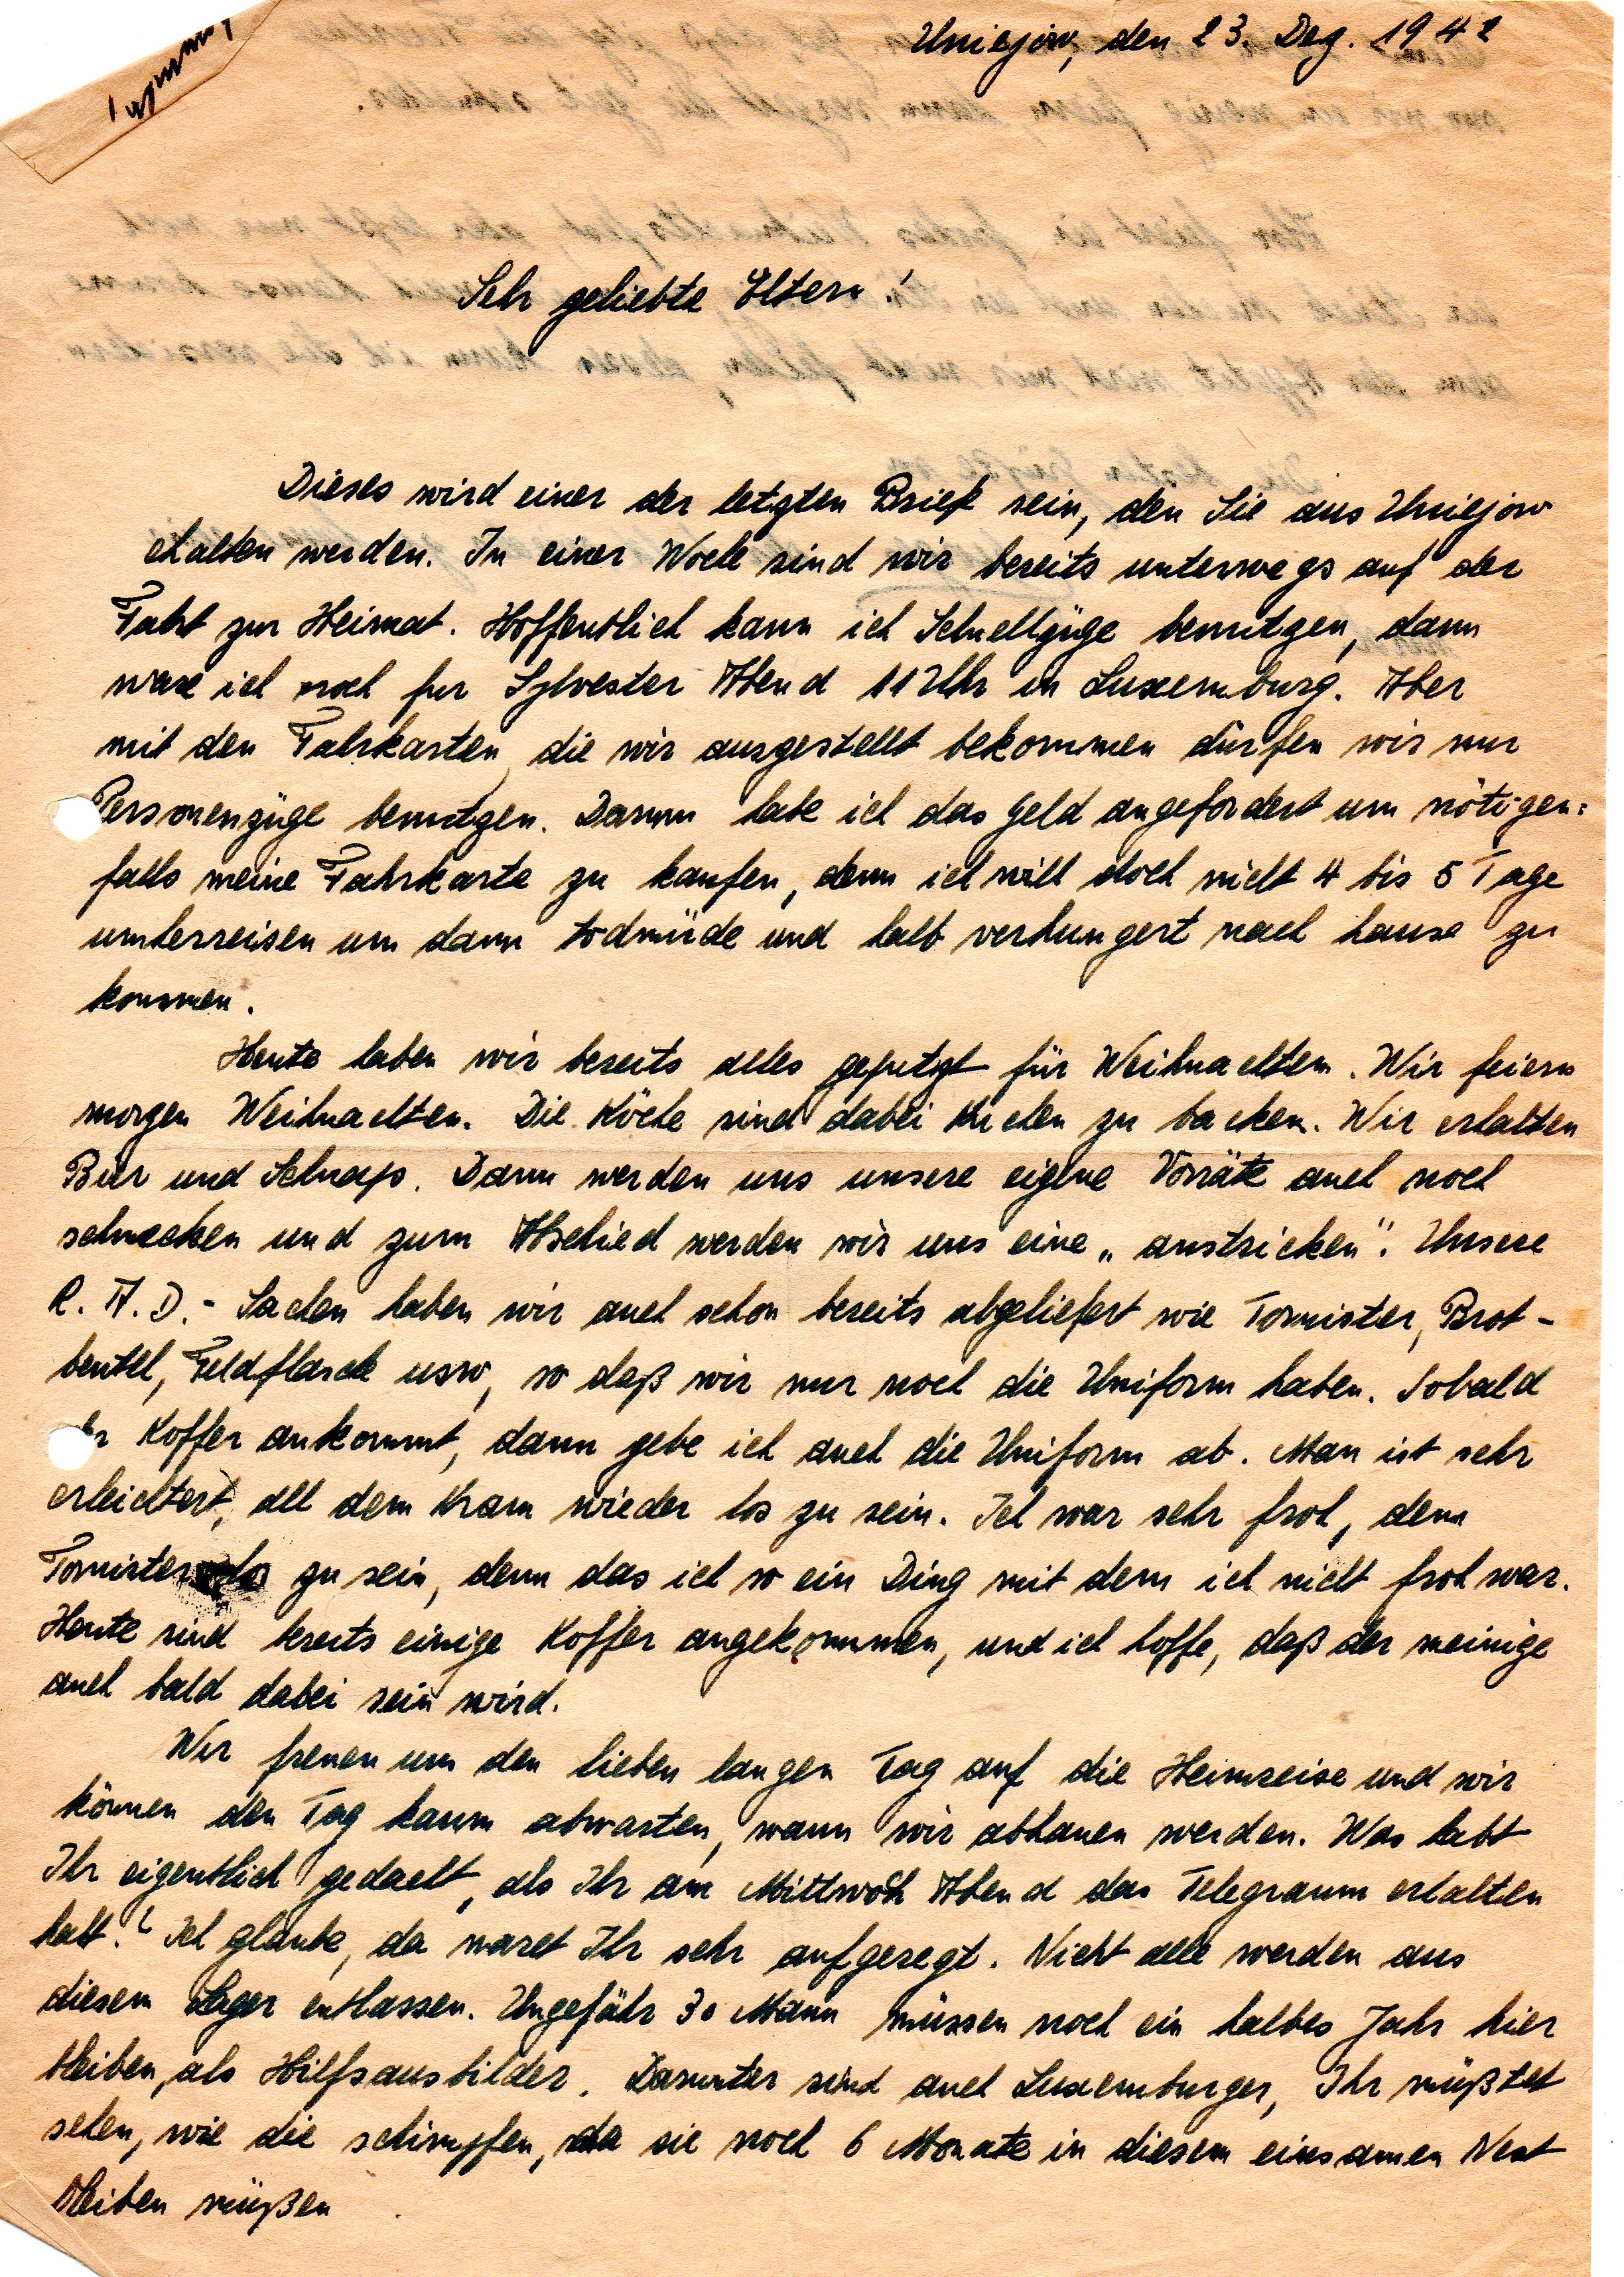 Uniejow, den 23. Dez. 1942
Sehr geliebte Eltern!
Dieses wird einer der letzten Brief sein, den Sie aus Uniejow
erhalten werden. In einer Woche sind wir bereits unterwegs auf der
Fahrt zur Heimat. Hoffentlich kann ich Schnellzüge benutzen, dann
wäre ich noch fur Sylvester Abend 11 Uhr in Luxemburg. Aber
mit den Fahrkarten, die wir ausgestellt bekommen dürfen wir nur
Personenzüge benutzen. Darum habe ich das Geld angefordert um nötigen=
falls meine Fahrkarte zu kaufen, denn ich will doch nicht 4 bis 5 Tage
umherreisen um dann todmüde und halb verhungert nach hause zu
kommen.
Heute haben wir bereits alles geputzt für Weihnachten. Wir feiern
morgen Weihnachten. Die Köche sind dabei Kuchen zu backen. Wir erhalten
Bier und Schnaps. Dann werden uns unsere eigene Vorräte auch noch
schmecken und zum Abschied werden wir uns eine „anstricken". Unsere
R.A.D.- Sachen haben wir auch schon bereits abgeliefert wie Tornister, Brot-
beutel, Feldflasche usw, so daß wir nur noch die Uniform haben. Sobald
Koffer ankommt, dann gebe ich auch die Uniform ab. Man ist sehr
erleichtert, all dem Kram wieder los zu sein. Ich war sehr froh, denn
Tornister los zu sein, denn das ich so ein Ding mit dem ich nicht froh war.
Heute sind bereits einige Koffer angekommen, und ich hoffe, daß der meinige
auch bald dabei sein wird.
Wir freuen um den lieben langen Tag auf die Heimreise und wir
können den Tag kaum abwarten, wann wir abhauen werden. Was habt
Ihr eigentlich gedacht, als Ihr am Mittwoch Abend das Telegramm erhalten
habt? Ich glaube, da waret Ihr sehr aufgeregt. Nicht alle werden aus
diesem Lager entlassen. Ungefähr 30 Mann müssen noch ein halbes Jahr hier
bleiben, als Hilfsausbilder. Darunter sind auch Luxemburger, Ihr müßtet
sehen, wie die schimpfen, da sie noch 6 Monate in diesem einsamen Nest
bleiben müßen.